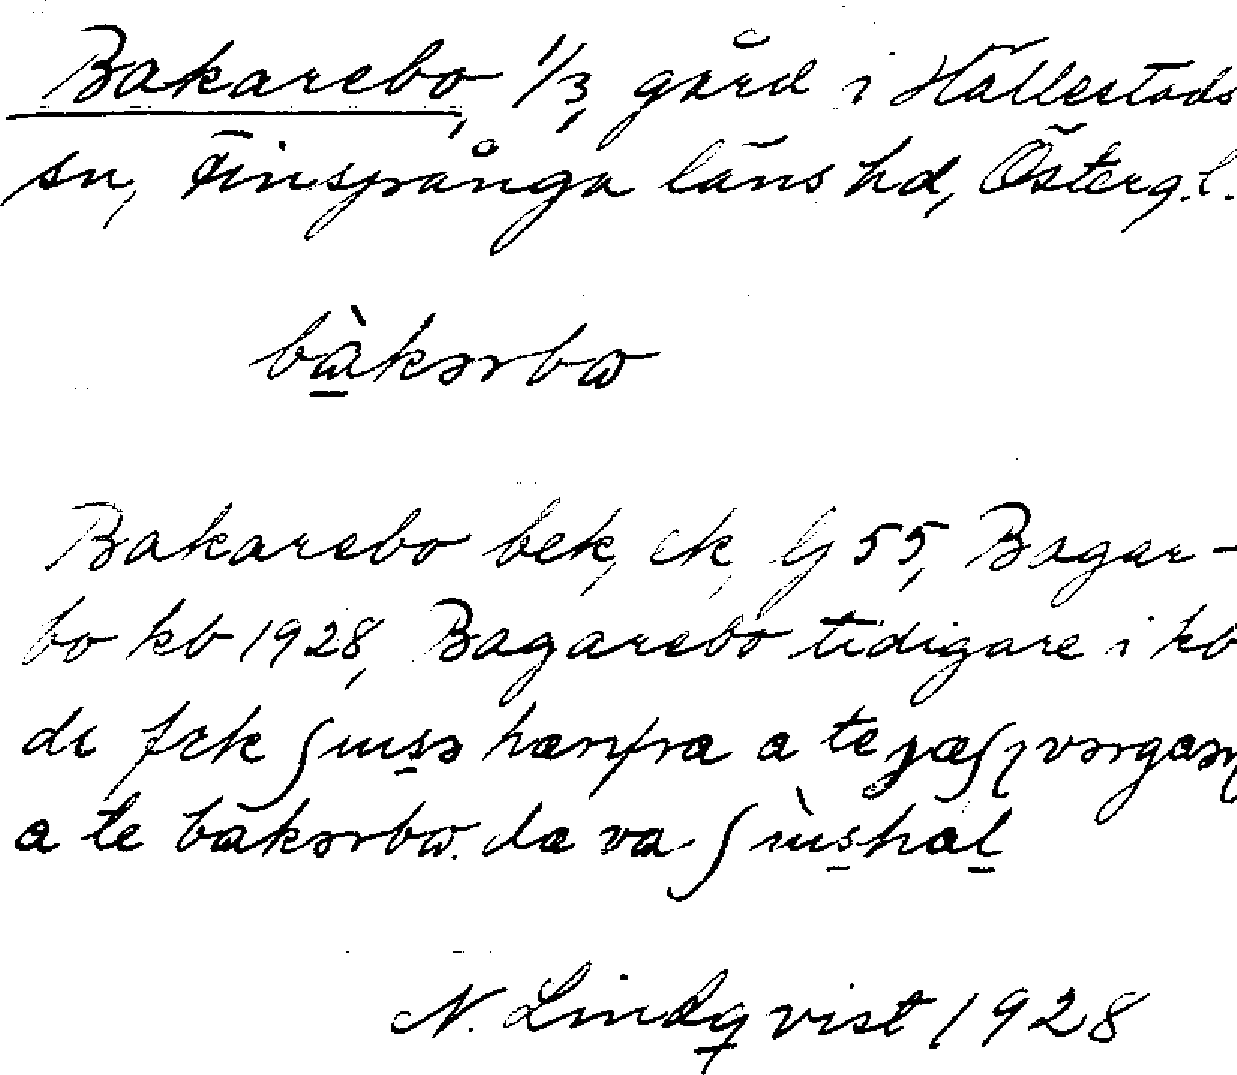 Bakarebo, 1/3, gård i Hällestads
sn, Finspånga läns hd, Östergl.
bàkərbω
Bakarebo bek, ek, Gj 55, Bagar-
bo kb 1928, Bagarebo tidigare i kb
di fek ʃusə hænfra a te
a te bàkərbω. dæ va ʃùshal
N. Lindqvist 1928